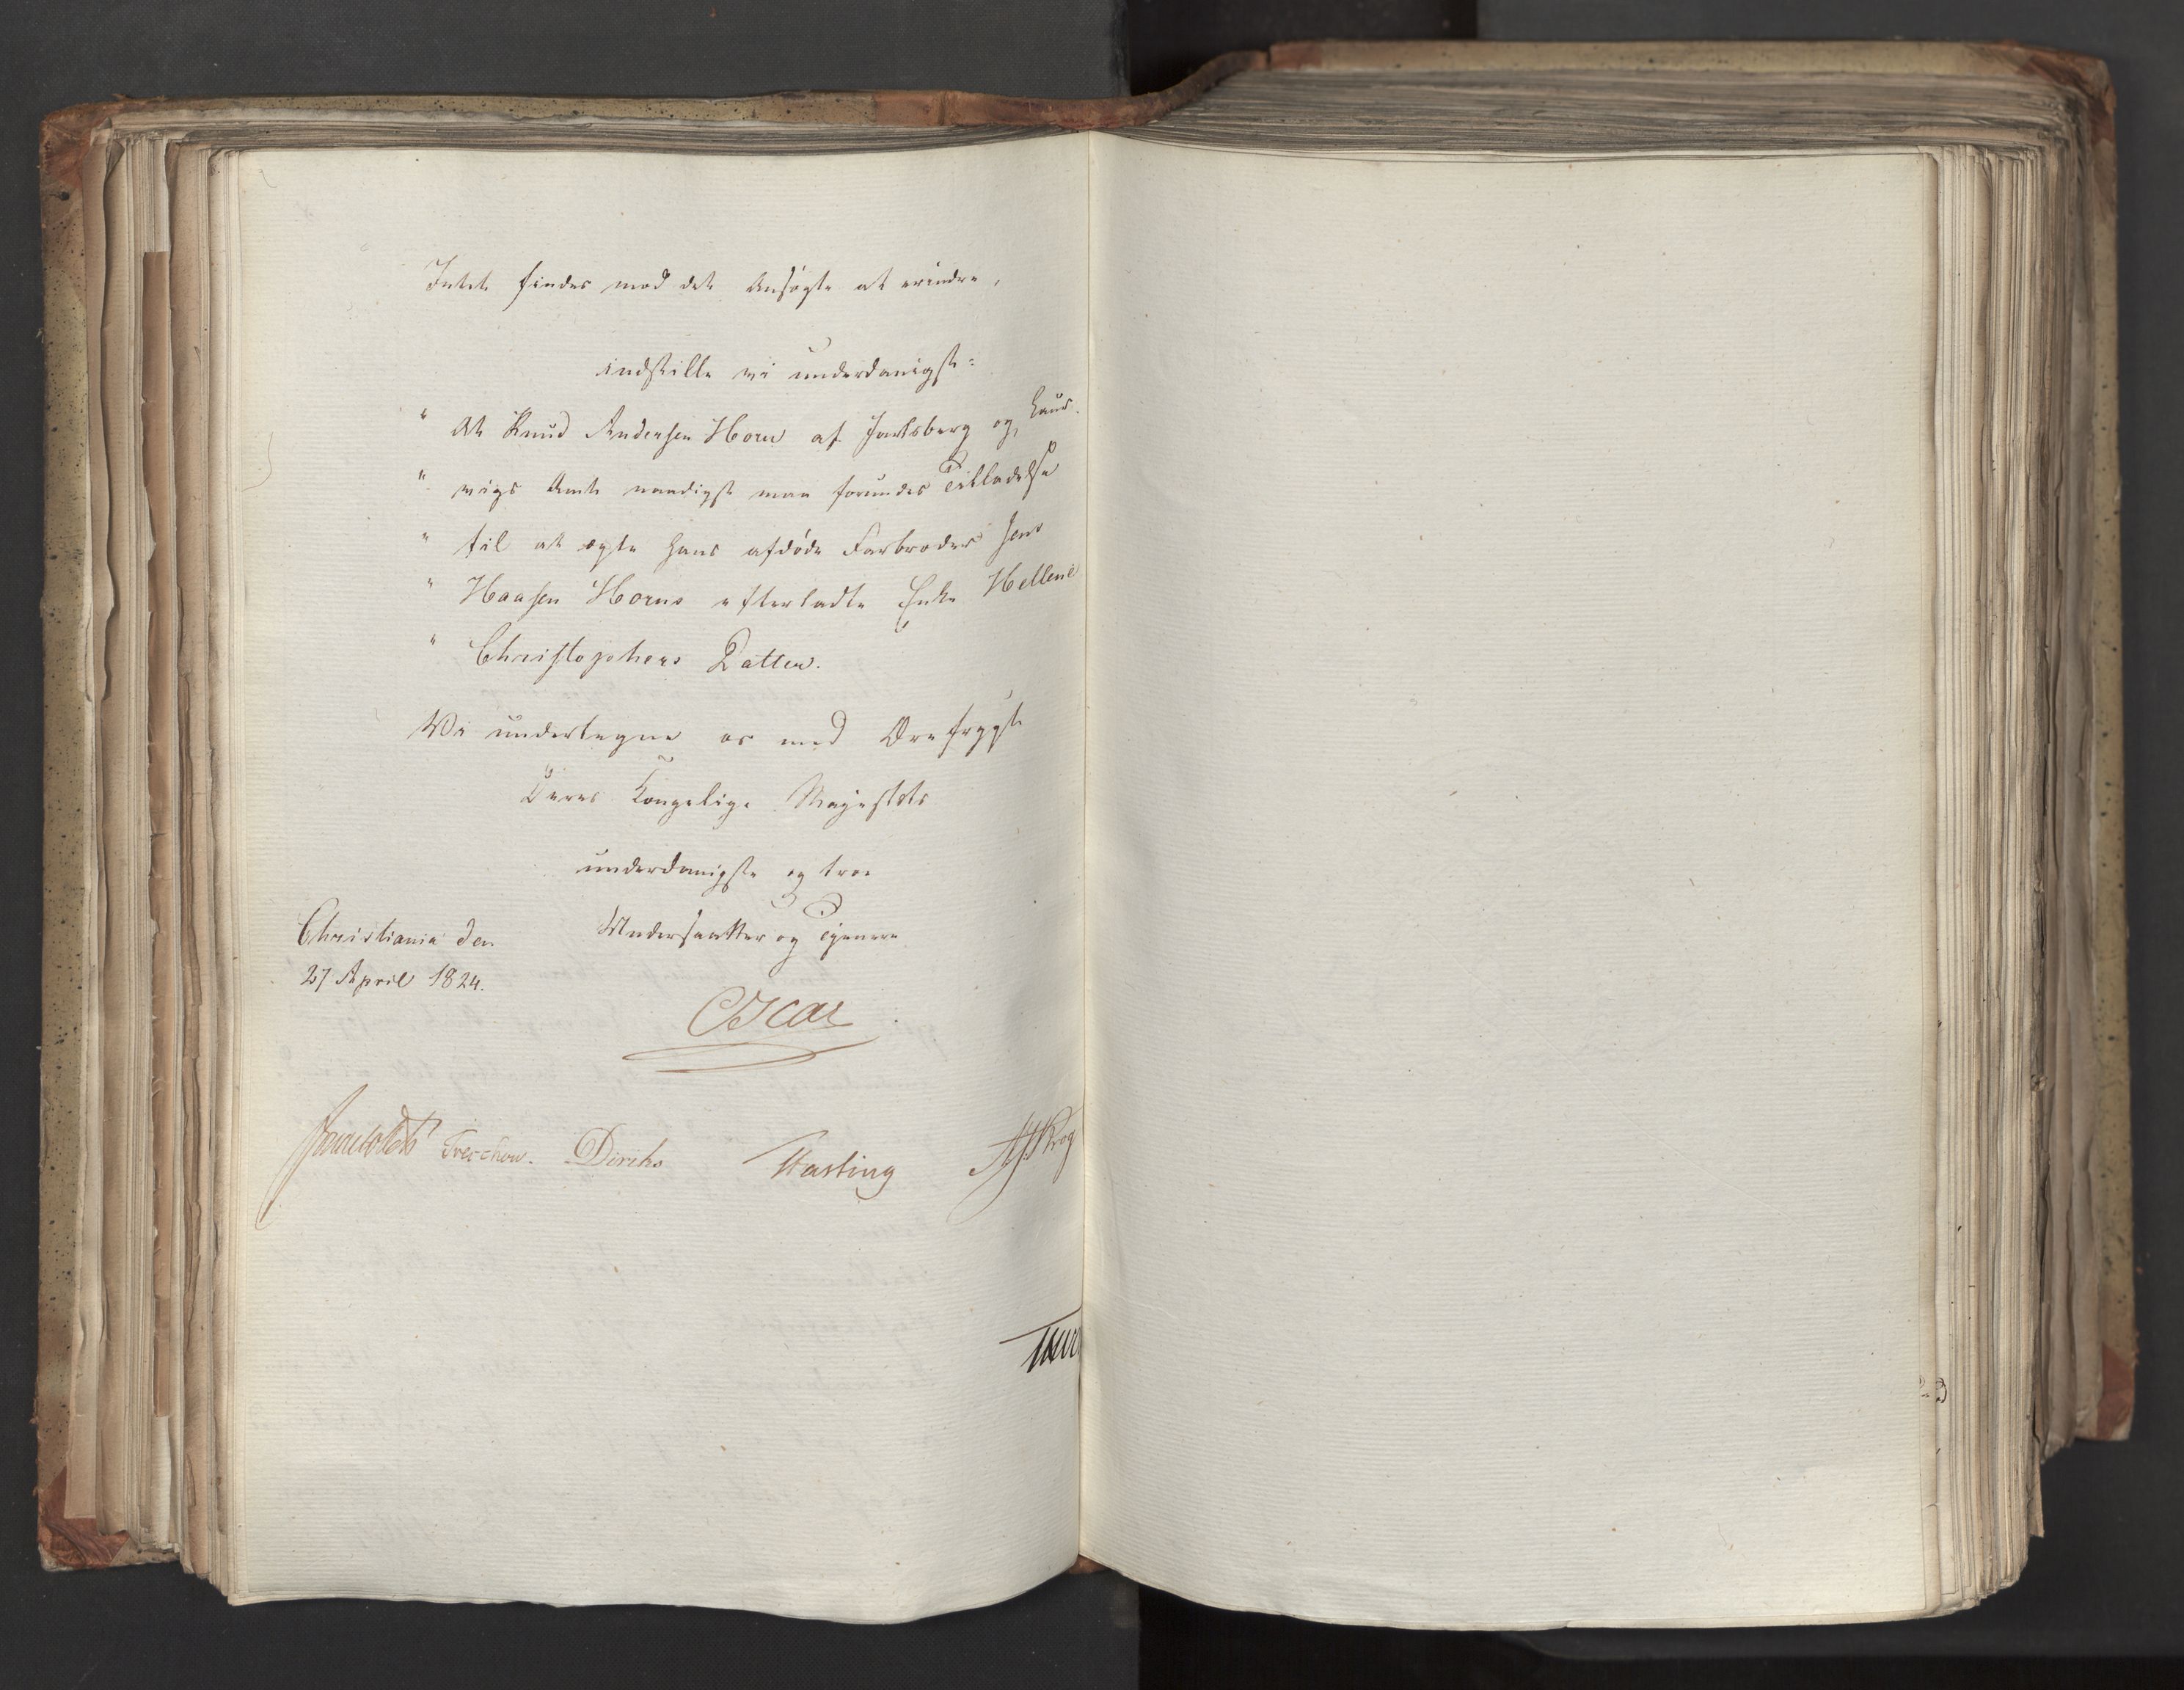 Intet findes mod det Ansøgte at erindre,
indstille vi underdanigst:
" At Knud Andersen Horn af Jarlsberg og Laur-
" vigs Amt naadigst maa forundes Tilladelse
" til at ægte hans afdøde Farbroder Jens
" Haasen Horns efterladte Enke Hellene
" Christophers Datter.
Vi undertegne os med Ærefrygt
Deres Kongelige Majestæts
underdanigste og troe
Undersaatter og Tjenere
Christiania den
27 April 1824.
Oscar
Sommerfeldt Treschow. Diriks Fasting Krog